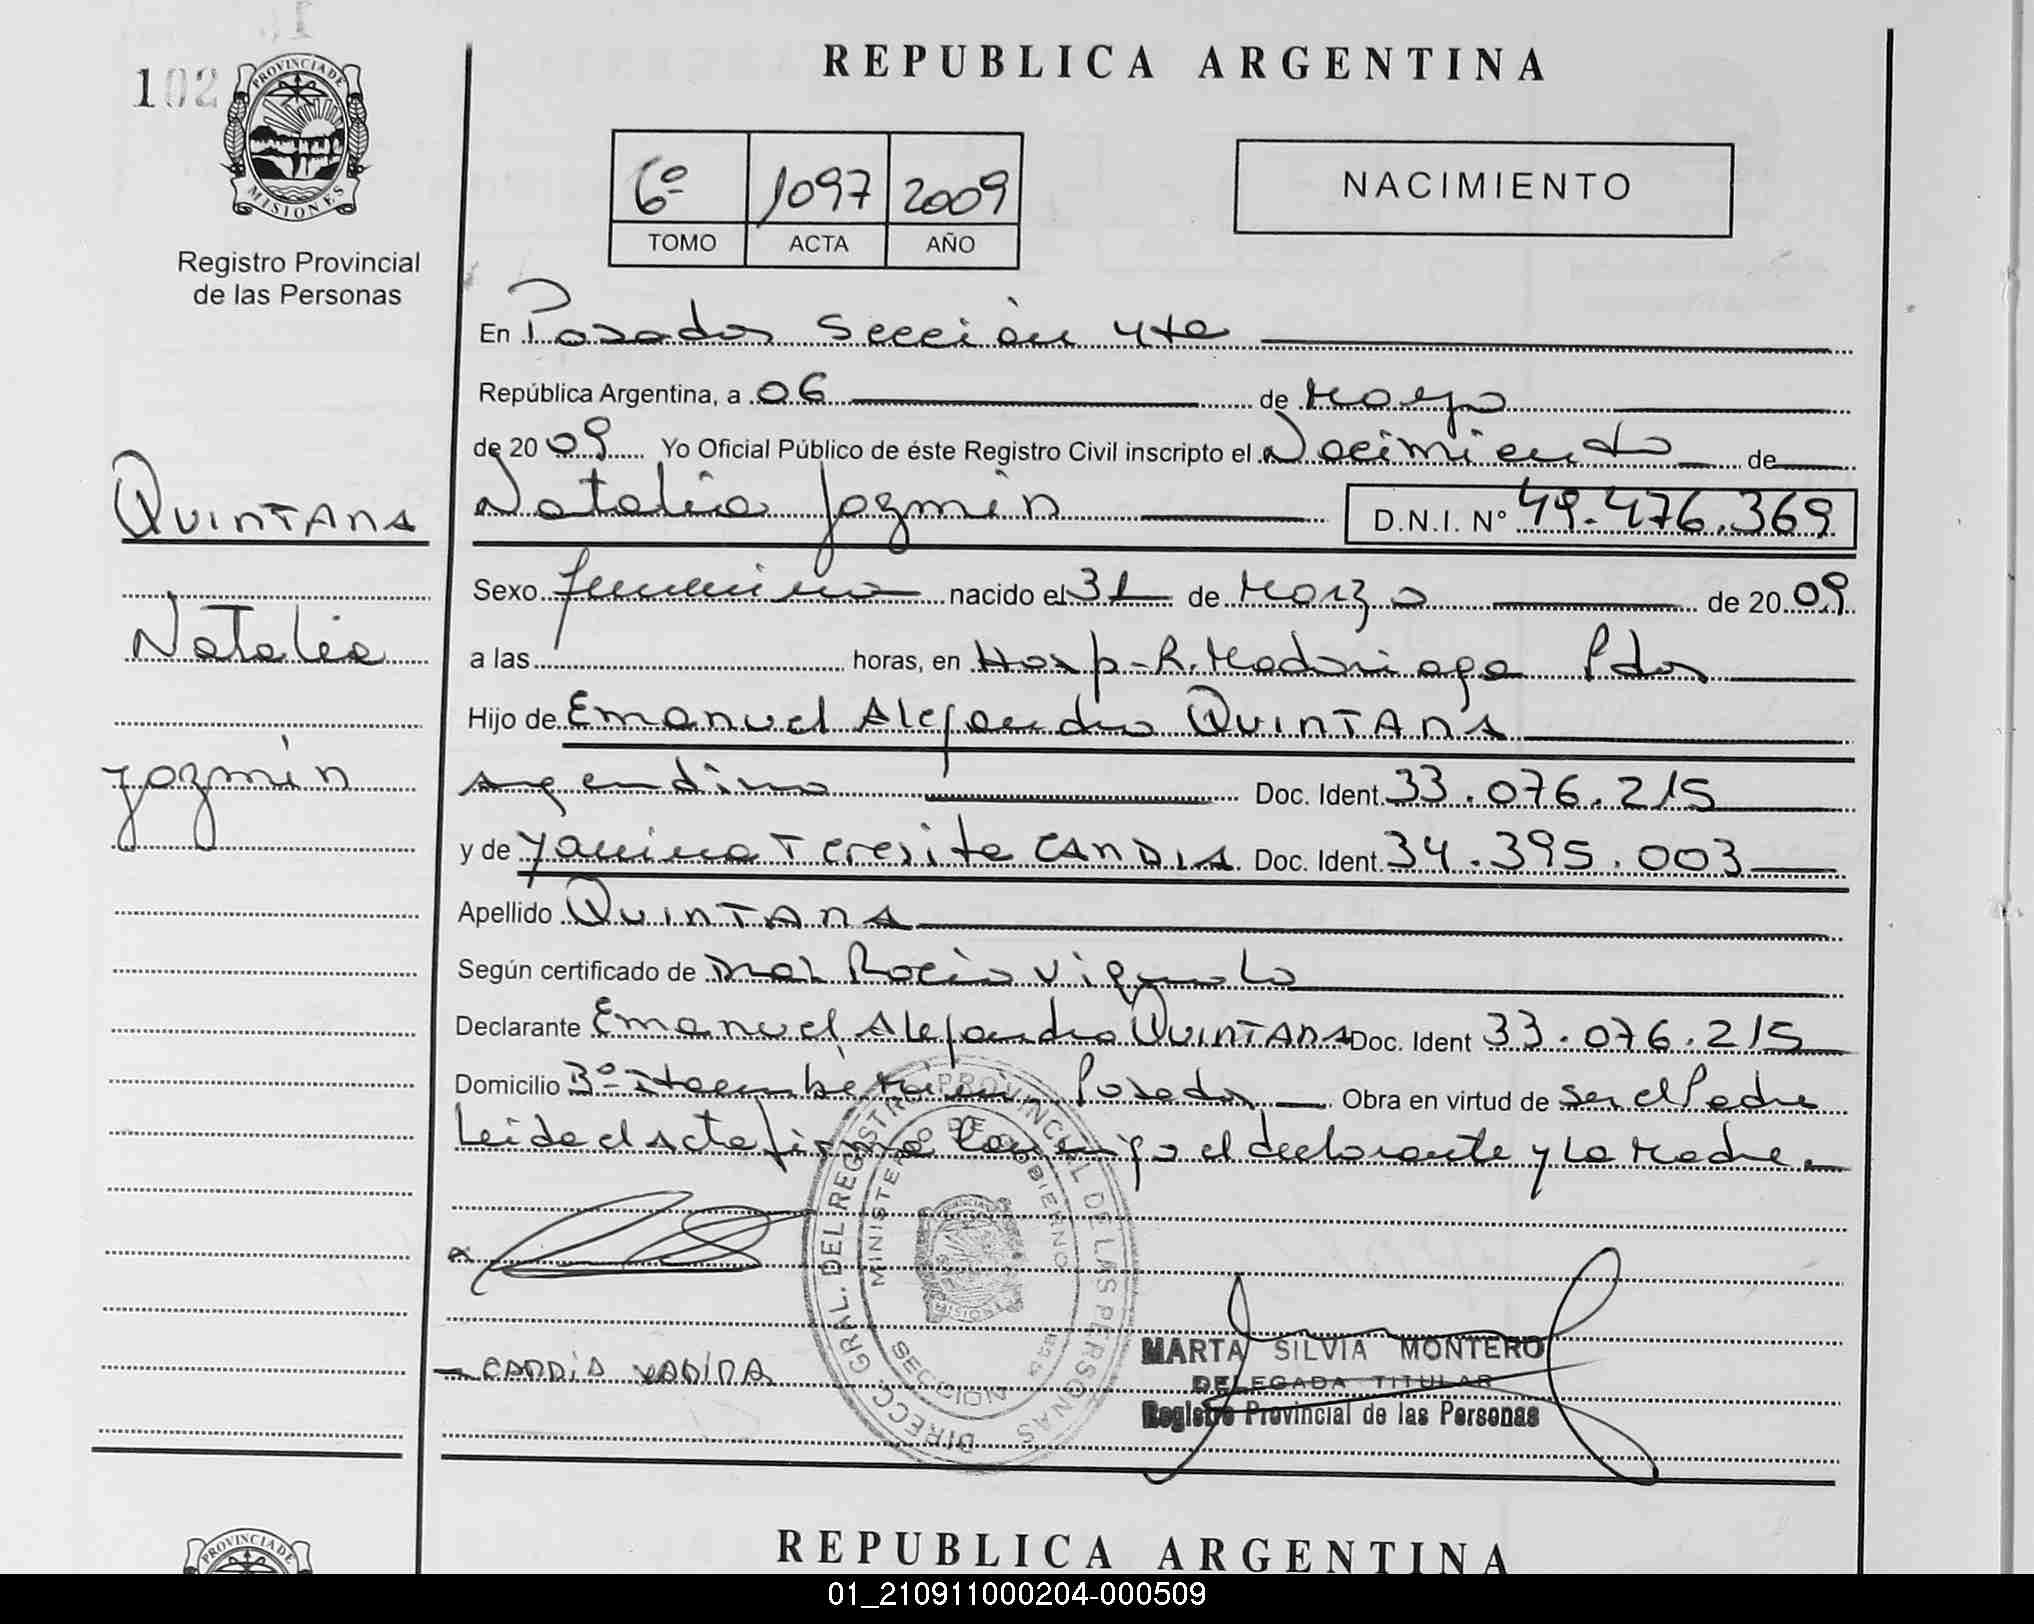 102
PROVINCIA DE
MISIONES
Registro Provincial
de las Personas
REPUBLICA ARGENTINA
6º 1097 2009
TOMO ACTA AÑO
NACIMIENTO
En Posadas Sección 4ta
República Argentina, a 06 de Mayo
de 2009 Yo Oficial Público de éste Registro Civil inscripto el Nacimiento de
Natalia Jazmin D.N.I. N° 49.476.369
QUINTANA
Natalia
Jazmin
Sexo femenino nacido el 31 de Marzo de 2009
a las horas, en Hosp. R. Madariaga Pdas
Hijo de Emanuel Alejandro QUINTANA
Argentino Doc. Ident. 33.076.215
y de Yanina Teresita CANDIA Doc. Ident. 34.395.003
Apellido QUINTANA
Según certificado de Rocío
Declarante Emanuel Alejandro QUINTANA Doc. Ident 33.076.215
Domicilio Posadas Obra en virtud de ser el Padre
Leida el Acta firma conmigo el declarante y la Madre
DIRECC. GRAL. DEL REGISTRO PROVINCIAL DE LAS PERSONAS
MINISTERIO DE GOBIERNO
SECCION
MISIONES
CANDIA YANINA
MARTA SILVIA MONTERO
DELEGADA TITULAR
Registro Provincial de las Personas
PROVINCIA DE
REPUBLICA ARGENTINA
01_210911000204-000509